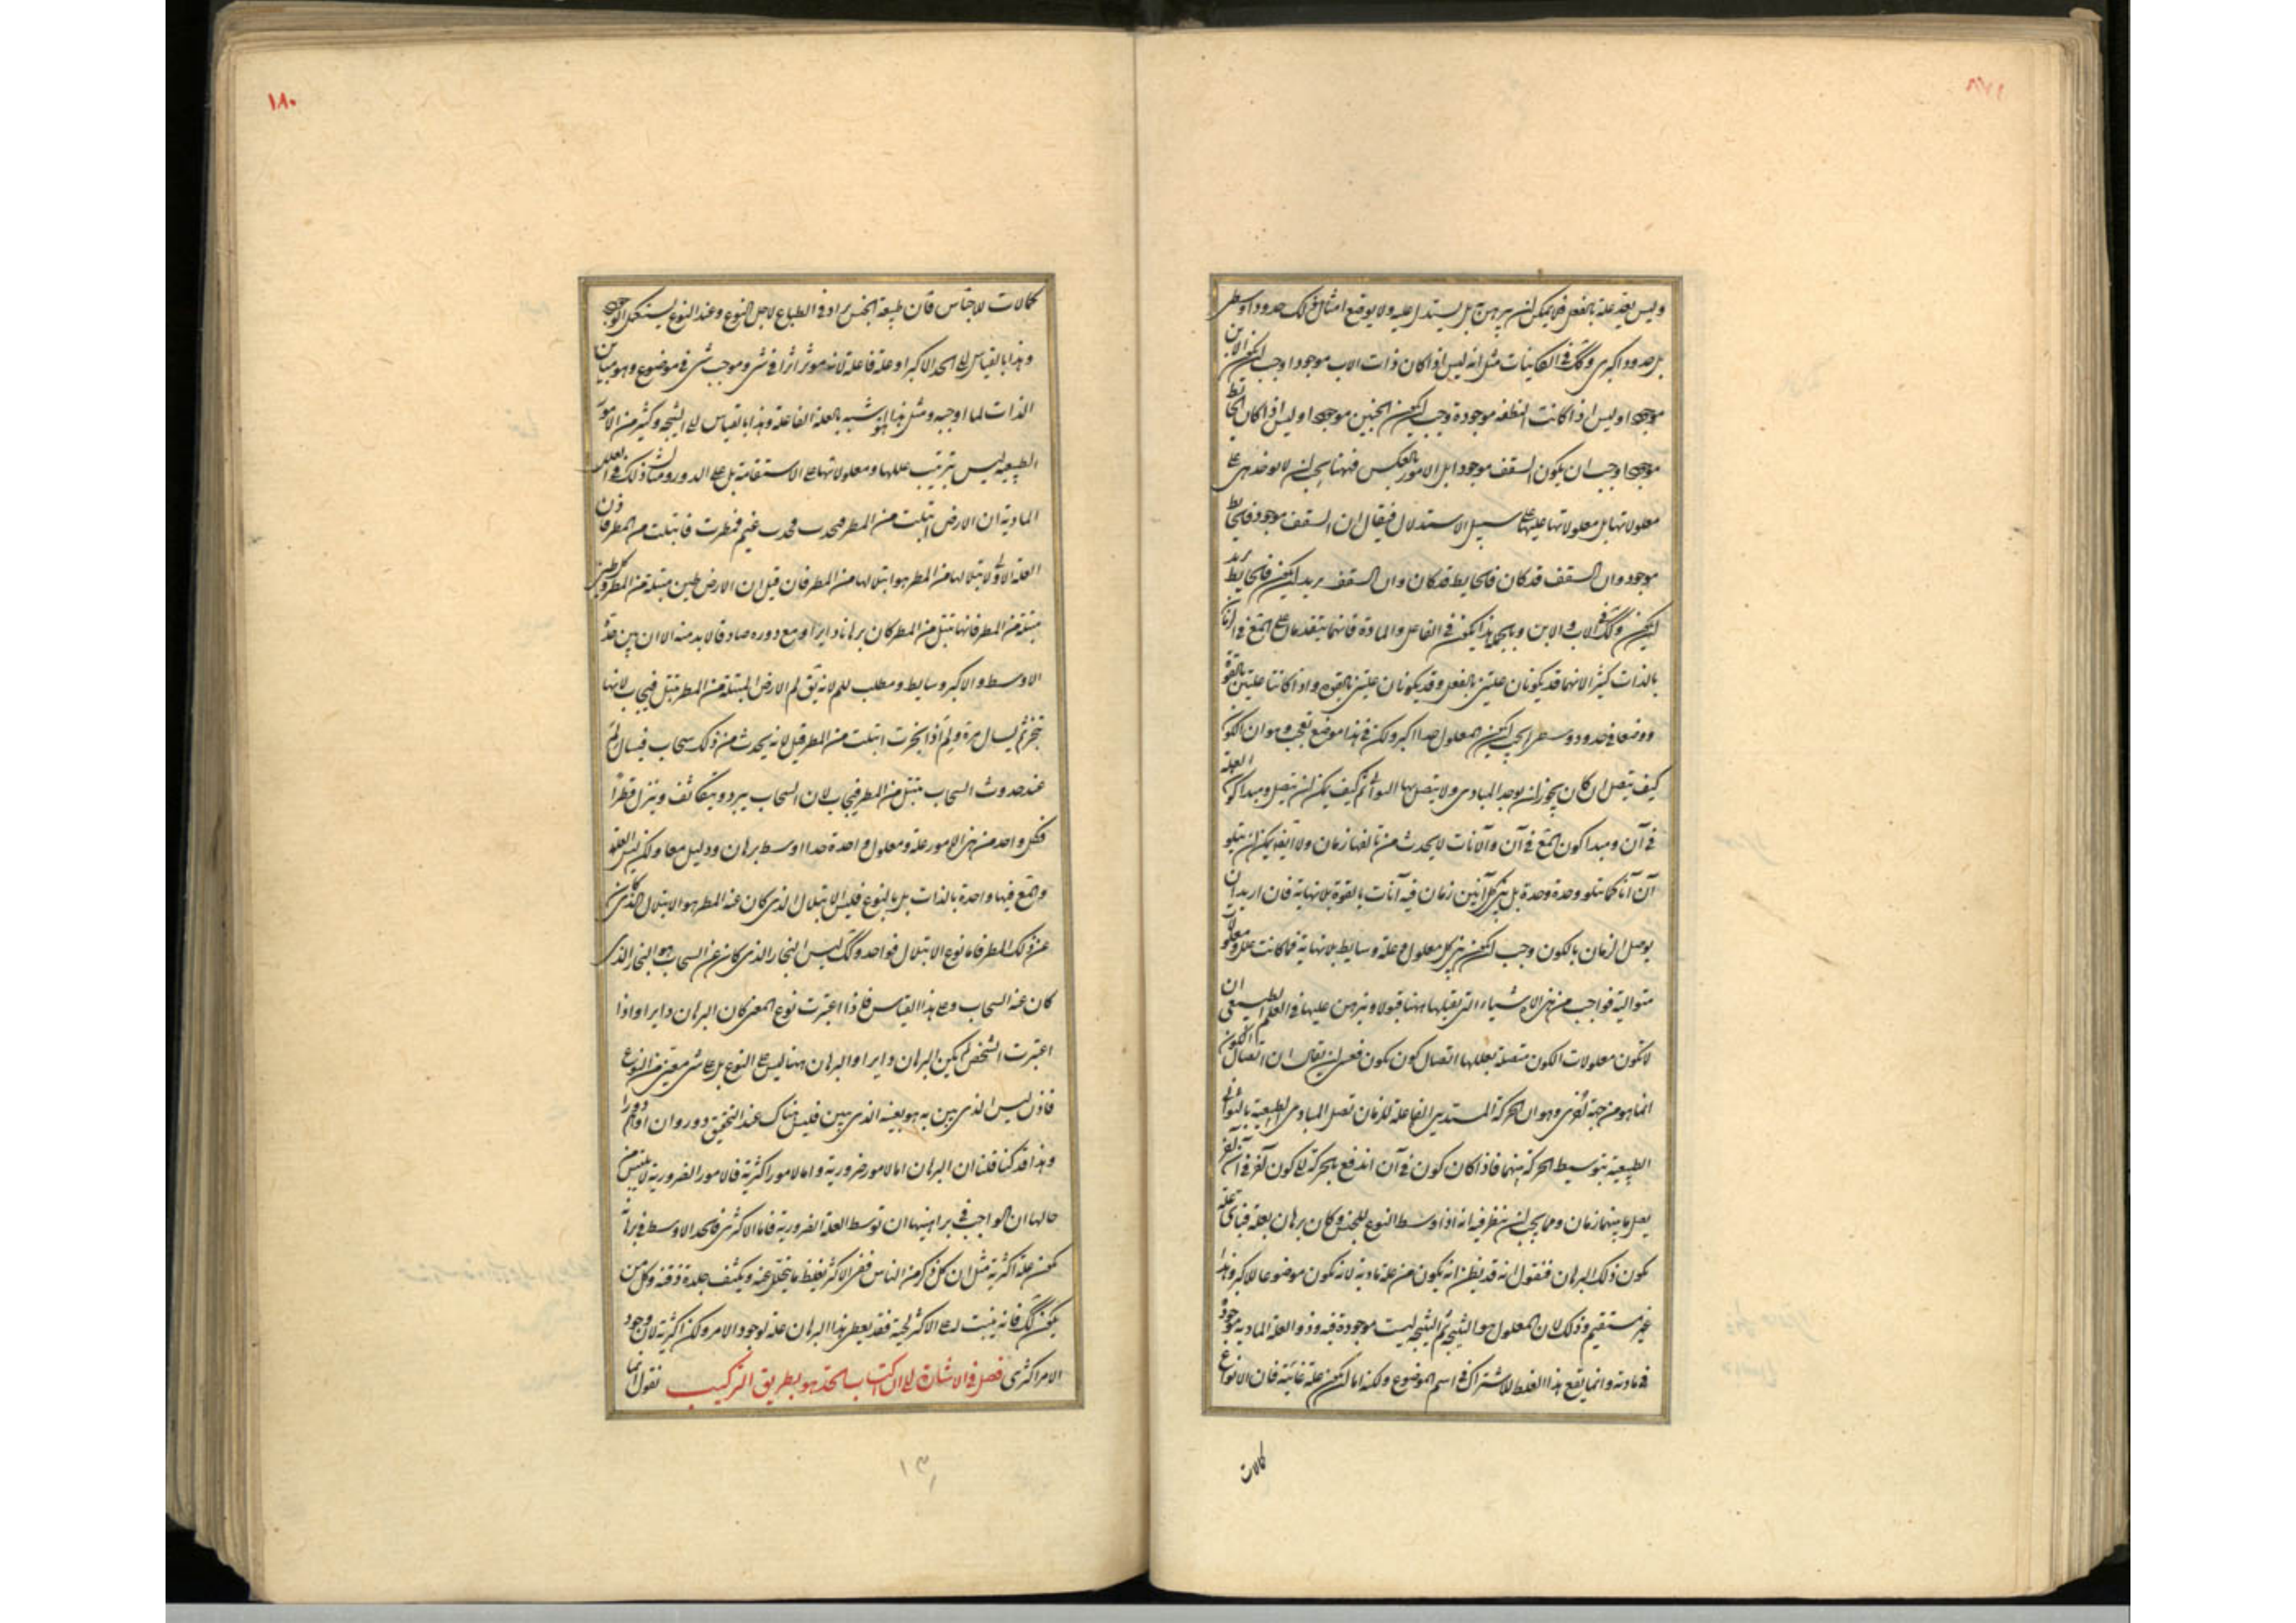 وليس بعد علة بالفعل فلا يمكن ان يبرهن به بل يستدل عليه ولا يوقع امثال ذلك حدودا وسطى
بل حدودا كبرى وكك في الكاينات مثل انه ليس اذا كان ذات الاب موجودا وجب ان يكون الابن
موجودا وليس اذا كانت النطفه موجودة وجب ان يكون الجنين موجودا وليس اذا كان الحايط
موجودا وجب ان يكون السقف موجودا بل الامور بالعكس فههنا يجب ان لا يوخذ هي على
معلولاتها بل معلولاتها عليها على سبيل الاستدلال فيقال ان السقف موجود فالحايط
موجود وان السقف قد كان فالحايط قد كان وان السقف يريد ان يكون فالحايط يريد
ان يكون وكك في الاب والابن وبالجملة هذا يكون في الفاعل والمادة فانهما يتقدمان على المع في الزمان
بالذات كثيرا لانهما قد يكونان علتين بالفعل وقد يكونان علتين بالقوه واذا كانتا علتين بالقوة
ووضعا في حدود وسطى لم يجب ان يكون المعلول حدا اكبر ولكن في هذا موضع تعجب وهو ان الكون
كيف يتصل ان كان يجوز ان يوجد المبادى ولا يتصل بها التوالى ثم كيف يمكن ان يتصل ومبدا كون العلة
في آن ومبدا كون المع في آن والآنات لا يحدث من تالفها زمان ولا ايضا يمكن ان يتلو
آن آنا كما يتلو وحدة وحدة بل بين كل آنين زمان فيه آنات بالقوة بلا نهاية فان اريد ان
يوصل الزمان بالكون وجب ان يكون بين كل معلول وعلة وسايط بلا نهاية فما كانت علل ومعلولات
متوالية فواجب من هذه الاشياء التى يقبلها ههنا قبولا ونبرهن عليها في العلم الطبيعى ان
لا تكون معلولات الكون متصلة بعللها اتصال كون بكون فعسى ان يقال ان اتصال الكون
انما هو من جهة اخرى وهو ان الحركة المستديرة الفاعلة للزمان تصل المبادى الطبيعية بالتوالى
الطبيعية بتوسيط الحركة بينهما فاذا كان كون في آن اندفع بالحركة الى كون آخر في آن آخر
يصل ما بينهما زمان ومما يجب ان ينظر فيه انه اذا وسط النوع للجنس وكان برهان بعلة فباى علة
يكون ذلك البرهان فنقول انه قد يظن انه يكون من علة مادية لانه يكون موضوعا للاكبر وهذا
غير مستقيم وذلك لان المعلول هو النتيجة ثم النتيجة ليست موجودة فيه وذو العلة المادية موجود
في مادته وانما يقع هذا الغلط للاشتراك في اسم الموضوع ولكنه اما ان يكون علة غائية فان الانواع
كمالات
١٨٠
كمالات للاجناس فان طبيعة الجنس مراد في الطباع لاجل النوع وعند النوع يستكمل الوجود
وهذا بالقياس الى الحد الاكبر او علة فاعلة لانه موثر اثرا في شى وموجب شى في موضوع وهو مباين
الذات لما اوجبه ومثل هذا هو شبيه بالعلة الفاعلة وهذا بالقياس الى النتيجه وكثير من الامور
الطبيعيه ليس يترتب عللها ومعلولاتها على الاستقامة بل على الدور ومثال ذلك في العلل
المادية ان الارض ابتلت من المطر فحدث فحدث غيم فمطرت فابتلت من المطر فاذن
العلة الاولى لابتلالها من المطر هو ابتلالها من المطر فان قيل ان الارض طين مبتلة من المطر وكل طين
مبتلة من المطر فانها تبتل من المطر كان برهانا دايرا ومع دوره صادقا لا بد منه الا ان بين حدى
الاوسط والاكبر وسايط ومطلب للم لانه يق لم الارض المبتلة من المطر تبتل فيجاب لانها
تبخر ثم يسال مرة ولم اذا بخرت ابتلت من المطر قيل لانه يحدث من ذلك سحاب فيسال لم
عند حدوث السحاب تبتل من المطر فيجاب لان السحاب يبرد ويتكاثف وينزل قطرا
فكل واحد من هذه الامور علة ومعلول واحدة حدا اوسط برهان ودليل معا ولكن ليس العلة
والمع فيها واحدة بالذات بل بالنوع فليس الابتلال الذى كان عنه المطر هو الابتلال الذى كان
عن ذلك المطر فاما نوع الابتلال فواحد وكك ليس البخار الذى كان عن السحاب هو البخار الذى
كان عنه السحاب وعلى هذا القياس فاذا اعتبرت نوع المعنى كان البرهان دايرا واذا
اعتبرت الشخص لم يكن البرهان دايرا والبرهان ههنا ليس على النوع بل على شى معين من النوع
فاذن ليس الذى بين به هو بعينه الذى بين فليس هناك عند التحقيق دور وان اوهم دورا
وهذا قد كنا قلنا ان البرهان اما لامور ضرورية واما لامور اكثرية فالامور الضرورية لا يلتبس من
حالها ان الواجب في براهينها ان توسط العلة الضرورية فاما الاكثرى فالحد الاوسط في برا
يكون علة اكثرية مثل ان كل ذكر من الناس ففى الاكثر يغلظ ما يتحلل عنه ويكثف جلدة ذقنه وكل من
يكون كك فانه ينبت له على الاكثر لحية فقد يعطى هذا البرهان علة لوجود الامر ولكن اكثرية لان وجود
الامر اكثرى فصل في الاشارة الى ان اكتساب الحد هو بطريق التركيب نقول انما